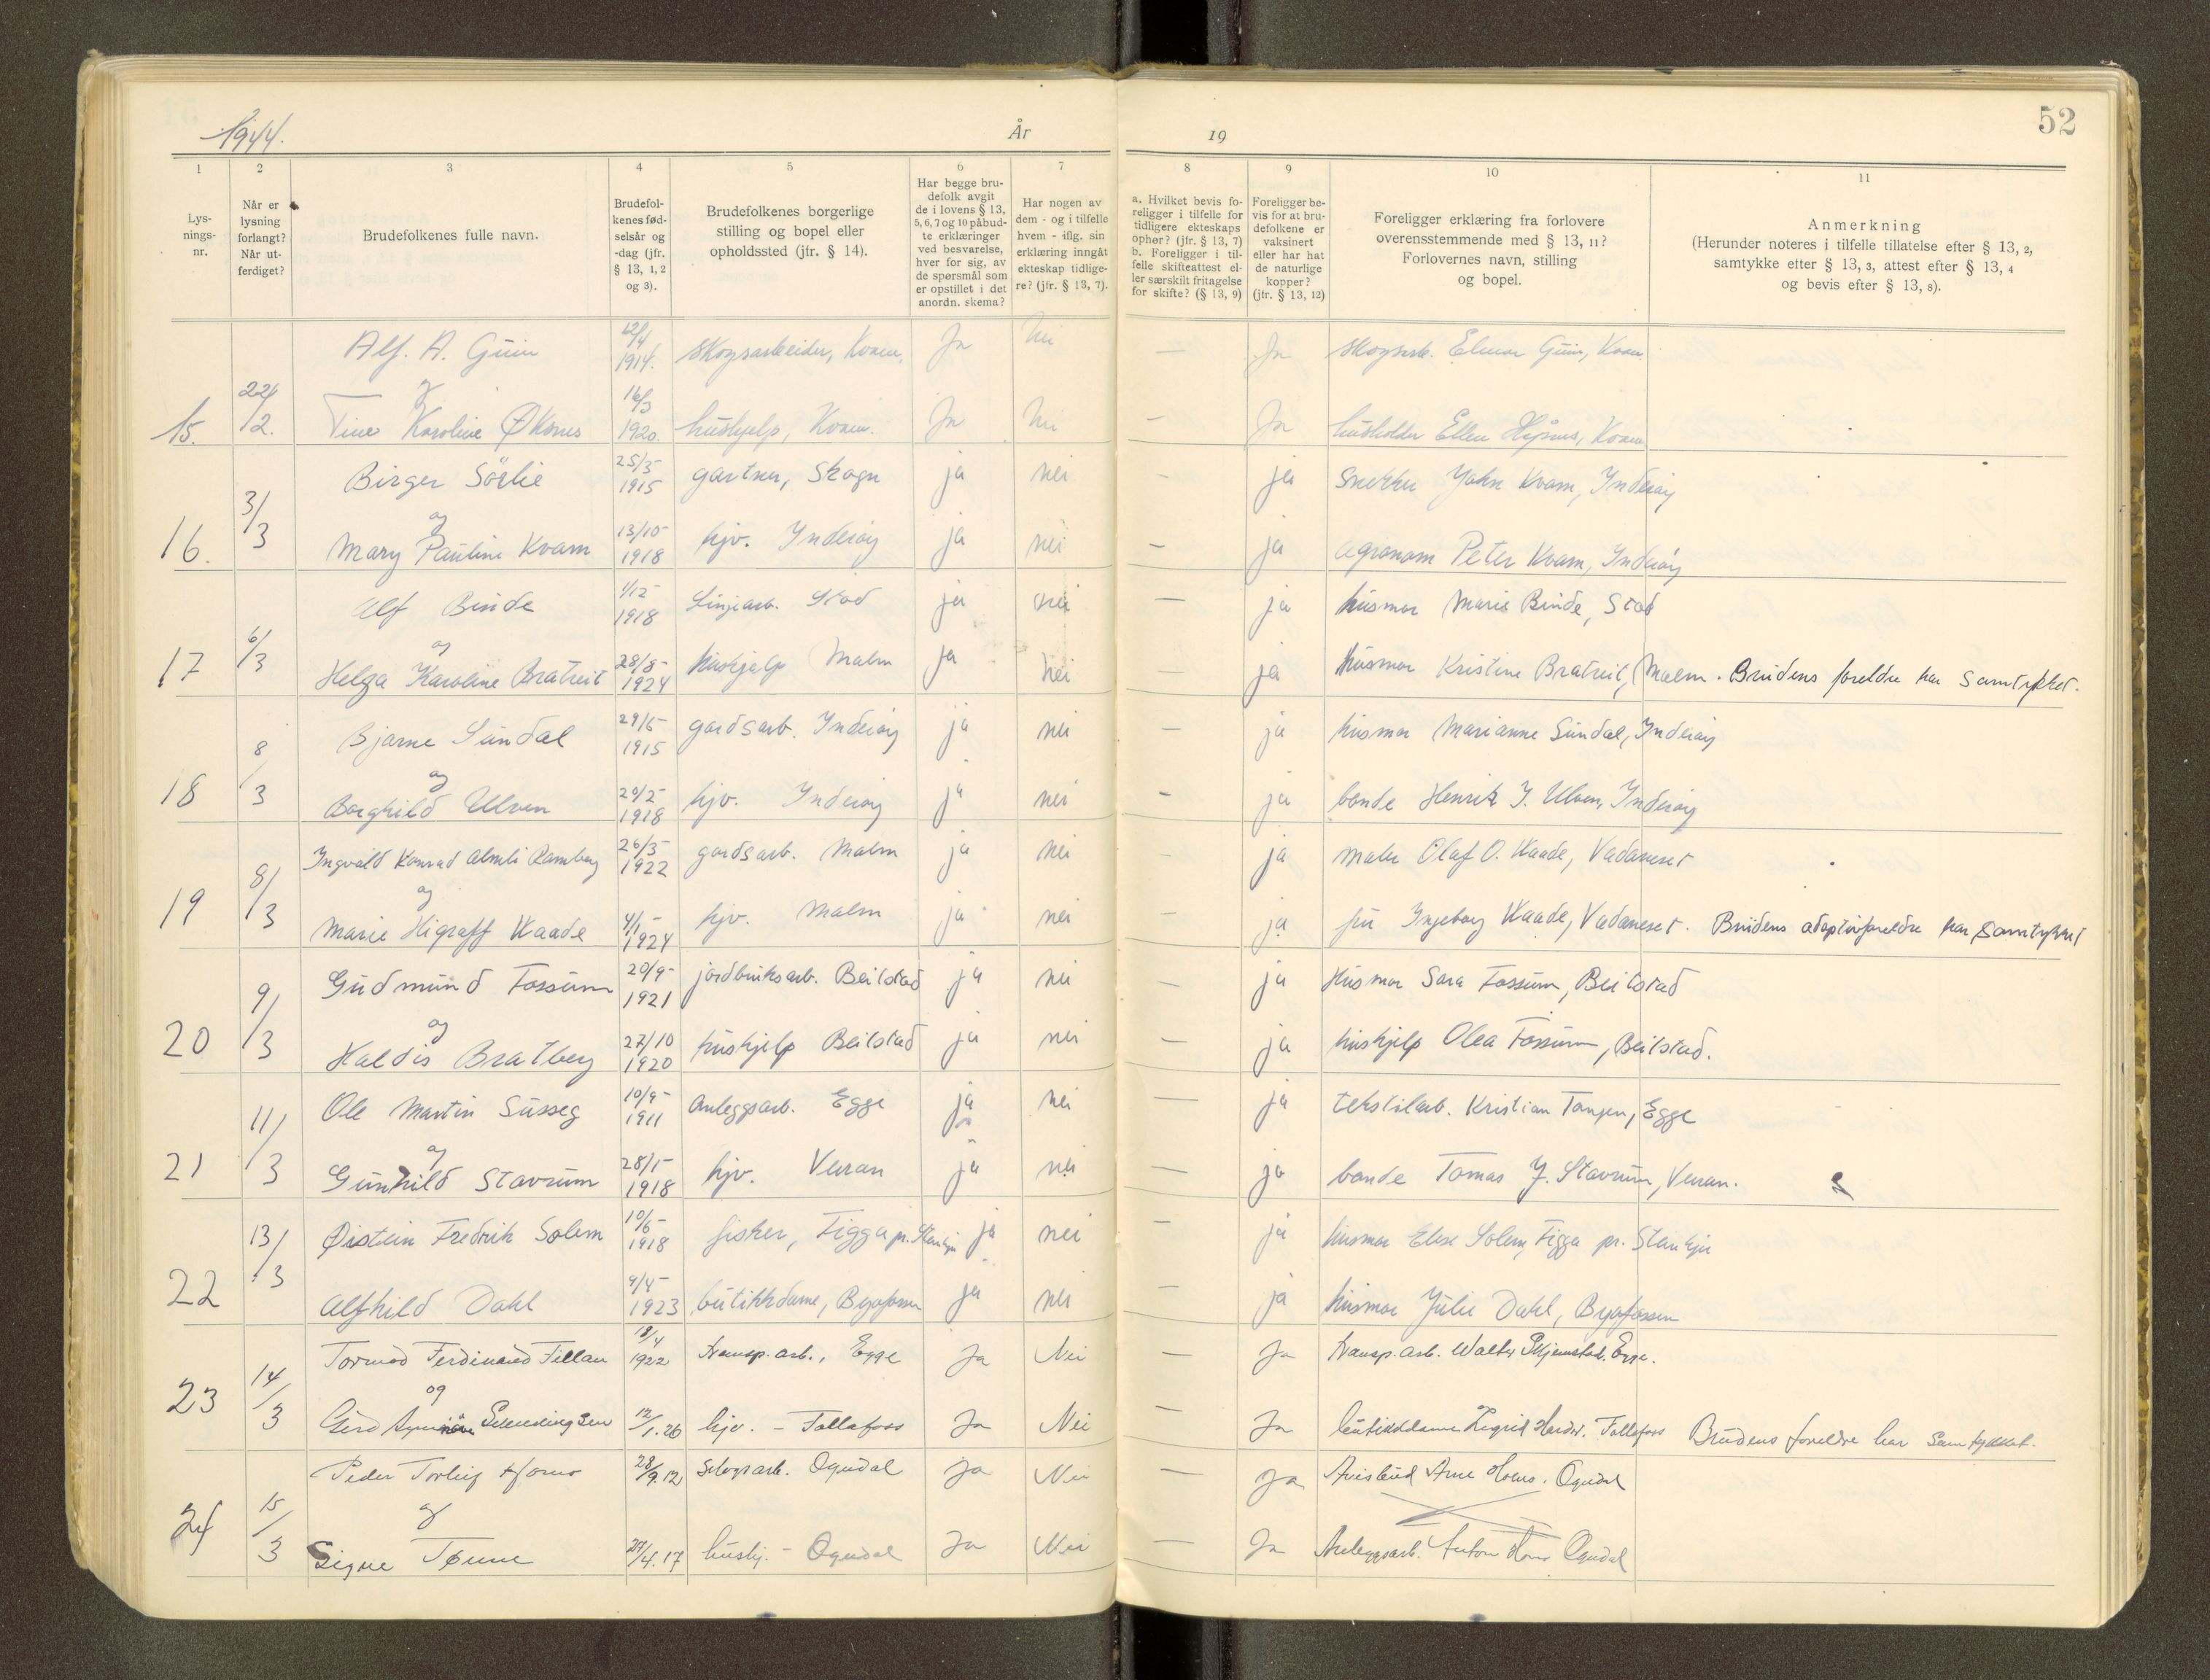 52
1944.
År
19
1 2 3 4 5 6 7 8 9 10 11
Lysnings-nr.
Når er lysning forlangt? Når utferdiget?
Brudefolkenes fulle navn.
Brudefolkenes fødselsår og -dag (jfr. § 13, 1, 2 og 3).
Brudefolkenes borgerlige stilling og bopel eller opholdssted (jfr. § 14).
Har begge brudefolk avgit de i lovens § 13, 5, 6, 7 og 10 påbudte erklæringer ved besvarelse, hver for sig, av de spørsmål som er opstillet i det anordn. skema?
Har nogen av dem - og i tilfelle hvem - iflg. sin erklæring inngåt ekteskap tidligere? (jfr. § 13, 7).
a. Hvilket bevis foreligger i tilfelle for tidligere ekteskaps ophør? (jfr. § 13, 7) b. Foreligger i tilfelle skifteattest eller særskilt fritagelse for skifte? (§ 13, 9)
Foreligger bevis for at brudefolkene er vaksinert eller har hat de naturlige kopper? (jfr. § 13, 12)
Foreligger erklæring fra forlovere overensstemmende med § 13, 11? Forlovernes navn, stilling og bopel.
Anmerkning (Herunder noteres i tilfelle tillatelse efter § 13, 2, samtykke efter § 13, 3, attest efter § 13, 4 og bevis efter § 13, 8).
Alf. A. Guin 12/4 1914. skogsarbeider, Kvam. Ja Nei — Ja skogsarb. Elmar Guin, Kvam.
og
15. 22/2. Tine Karoline Øksnes 16/3 1920. hushjelp, Kvam. Ja Nei — Ja husholder Ellen Kvam
Birger Sörlie 25/5- 1915 gartner, Skogn ja nei - ja Snekker John Kvam, Inderøy
og
16. 3/3 Mary Pauline Kvam 13/10- 1918 hjv. Inderøy ja nei - ja agronom Peter Kvam, Inderøy
Alf Binde 1/12- 1918 Linjearb. Stod ja nei — ja husmor Marie Binde, Stod
og
17 6/3 Helga Karoline Bratreit 28/8- 1924 hushjelp Malm ja nei — ja husmor Kristine Bratreit, Malm. Brudens foreldre har samtykket.
Bjarne Sundal 29/6- 1915 gardsarb. Inderøy ja nei — ja husmor Marianne Sundal, Inderøy
og
18 8/3 Borghild Ulven 20/2- 1918 hjv. Inderøy ja nei - ja bonde Henrik J. Ulven, Inderøy
Ingvald Konrad Almli Ramberg 26/3- 1922 gardsarb. Malm ja nei — ja maler Olaf O. Waade, Vadaneset
og
19 8/3 Marie Higraff Waade 4/1- 1924 hjv. Malm ja nei — ja fru Ingeborg Waade, Vadaneset. Brudens adoptivforeldre har samtykket
Gudmund Fossum 20/9- 1921 jordbruksarb. Beitstad ja nei — ja Husmor Sara Fossum, Beitstad
og
20 9/3 Haldis Bratberg 27/10 1920 hushjelp Beitstad ja nei — ja hushjelp Olea Fossum, Beitstad.
Ole Martin Susseg 10/9- 1911 Anleggsarb. Egge ja nei — ja tekstilarb. Kristian Tangen, Egge
og
21 11/3 Gunhild Stavrum 28/1- 1918 hjv. Verran ja nei — ja bonde Tomas J. Stavrum, Verran.
Øistein Fredrik Solem 10/6- 1918 fisker, Figga pr. Steinkjer ja nei — ja husmor Else Solem, Figga pr. Steinkjer
22 13/3 Alfhild Dahl 9/4- 1923 butikkdame, Byafossen ja nei — ja husmor Julie Dahl, Byafossen
Tormod Ferdinand Fillan 18/4 1922 transp.arb., Egge Ja Nei — Ja transp.arb. Walter Egge.
og
23 14/3 Gerd 12/1.26 hjv. - Follafoss Ja Nei — Ja butikkdame Sigrid Follafoss Brudens foreldre har samtykket.
Peder 28/9.12 skogsarb. Ogndal Ja Nei — Ja Arne Ogndal
og
24 15/3 Signe Tømme 27/4.17 hushj. - Ogndal Ja Nei — Ja Anleggsarb. Anton Ogndal